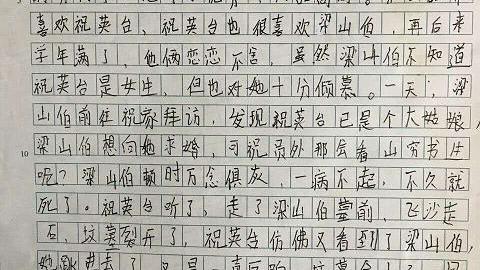 喜欢祝英台，祝英台也很喜欢梁山伯，再后来
学年满了，他俩恋恋不舍，虽然梁山伯不知道
祝英台是女生，但也对她十分倾慕。一天，梁
山伯前往祝家拜访，发现祝英台已是个大姑娘，
10 梁山伯想向她求婚，可祝员外那会看山穷书生
呢？梁山伯顿时万念俱灰，一病不起，不久就
死了。祝英台听了，走了梁山伯墓前，飞沙走
石，坟墓裂开了，祝英台仿佛又看到了梁山伯，